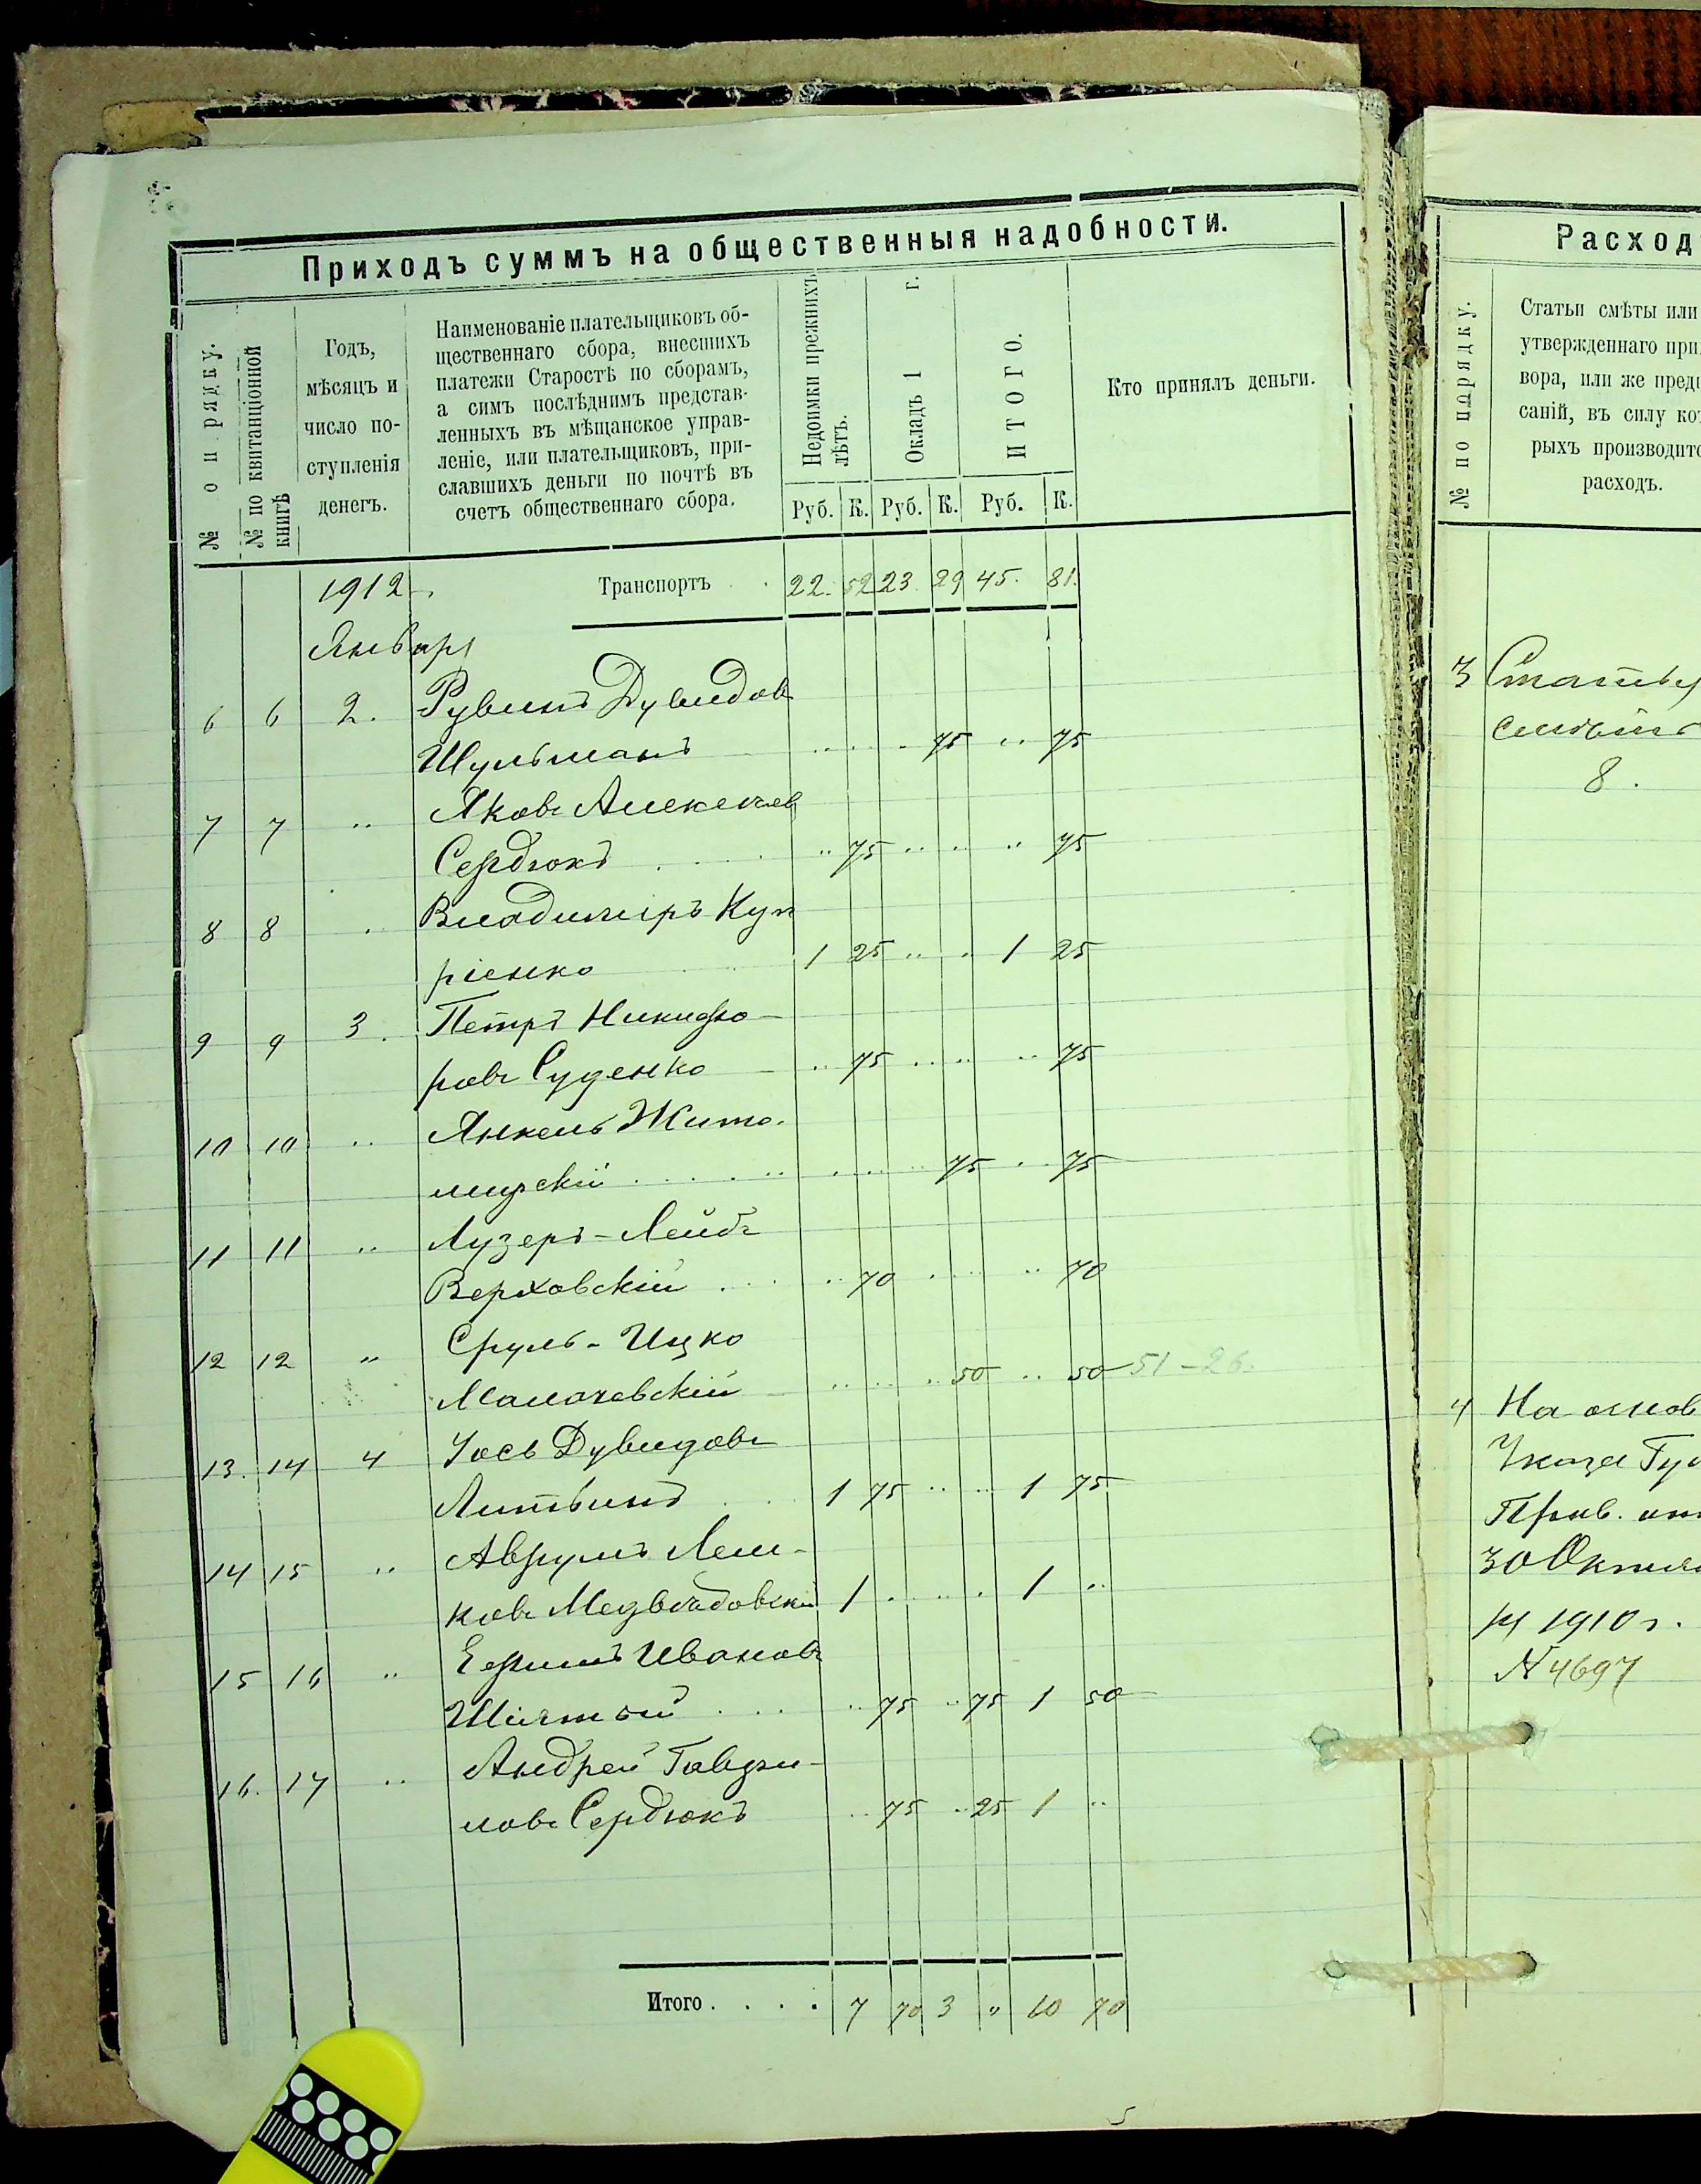 Приходъ суммъ на общественныя надобности.
№ по рядку.
№ по квитанціонной книгѣ
Годъ,
мѣсяцъ и
число по-
ступленія
денегъ.
Наименованіе плательщиковъ об-
щественнаго сбора, внесшихъ
платежи Старостѣ по сборамъ,
а симъ послѣднимъ представ-
ленныхъ въ мѣщанское управ-
леніе, или плательщиковъ, при-
славшихъ деньги по почтѣ въ
счетъ общественнаго сбора.
Недоимки прежнихъ
лѣтъ.
Окладъ 1 г.
ИТОГО.
Кто принялъ деньги.
Руб. К. Руб. К. Руб. К.
1912 г. Транспортъ 22. 52 23 29 45. 81.
Января
6 6 2. Рувинъ Дувидовъ
Шульманъ 75 75
7 7 " Яковъ Алексѣевъ
Сердюкъ 75 75
8 8 Владиміръ Куп
ріенко 1 25 1 25
9 9 3. Петръ Никифо-
ровъ Суденко 75 75
10 10 " Янкель Жито-
мирскій 75 75
11 11 " Лузеръ-Лейбъ
Верховскій 70 70
12 12 " Сруль-Ицко
Малачевскій 50 50 51-26.
13. 14 4 Іось Дувидовъ
Литвинъ 1 75 1 75
14 15 " Аврумъ Леш-
ковъ Медвѣдовскій 1 1 "
15 16 " Ефимъ Ивановъ
75 75 1 50
16. 17 " Андрей Гаври-
ловъ Сердюкъ 75 25 1 "
Итого . . . . 7 70 3 " 10 70
5
Расход
№ по порядку.
Статьи смѣты или
утвержденнаго при
вора, или же пред
саній, въ силу ко
рыхъ производит
расходъ.
3 Статья
смѣты
8.
4 На основ
Указа Гу
Прав. от
30 Октя
1910 г.
N 4697